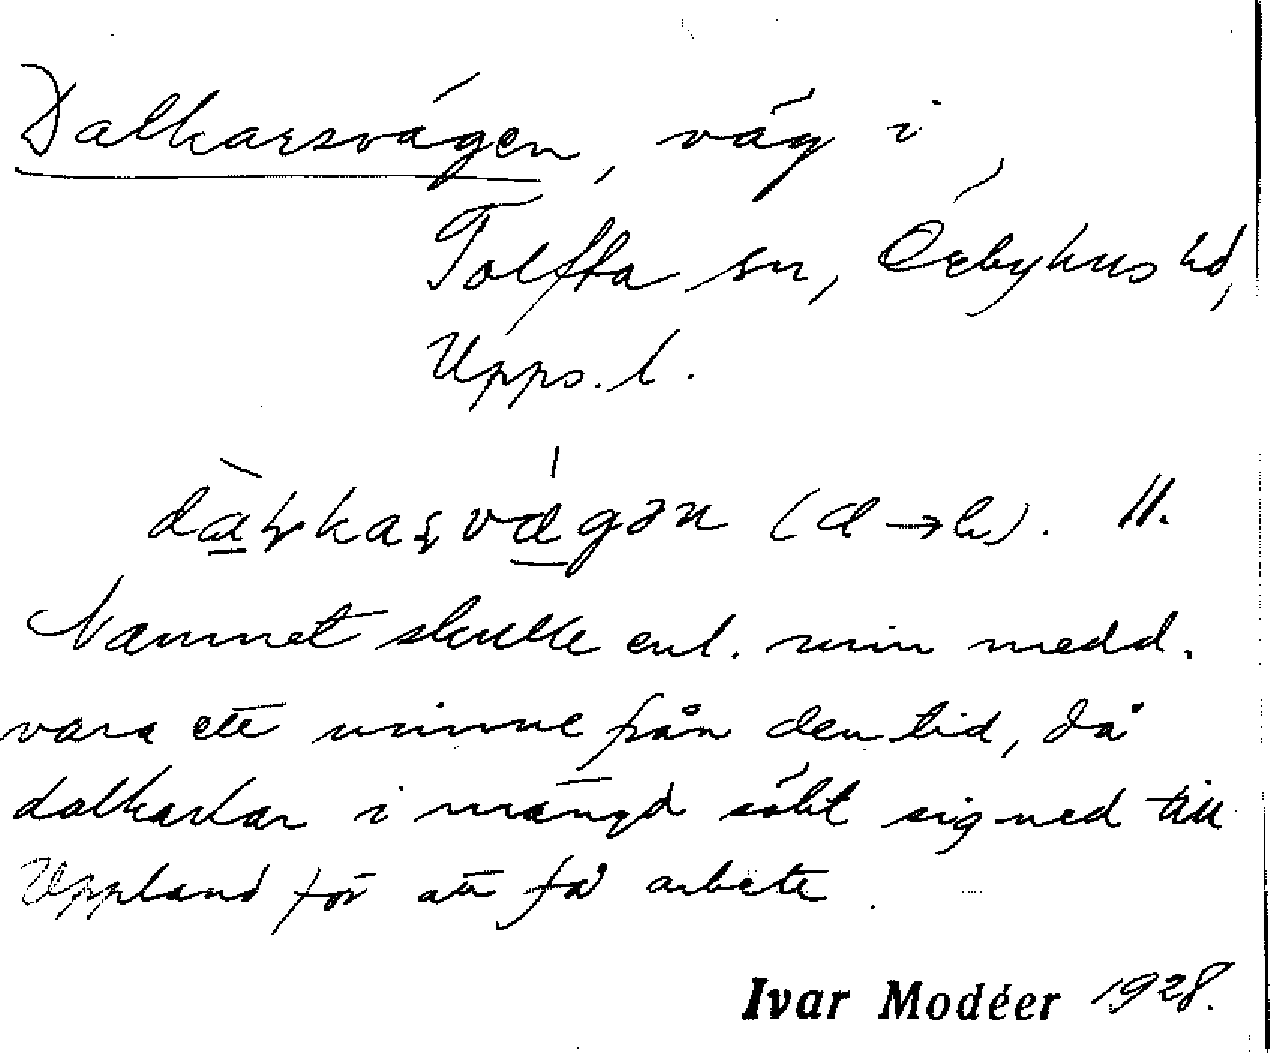 Dalkarsvägen, väg i
Tolfta sn, Örbyhus hd,
Upps. l.
dàlkaʂvǽgən (d → l). ll.
Namnet skulle enl. min medd.
vara ett minne från den tid, då
dalkarlar i mängd sökt sig ned till
Uppland för att få arbete.
Ivar Modéer 1928.